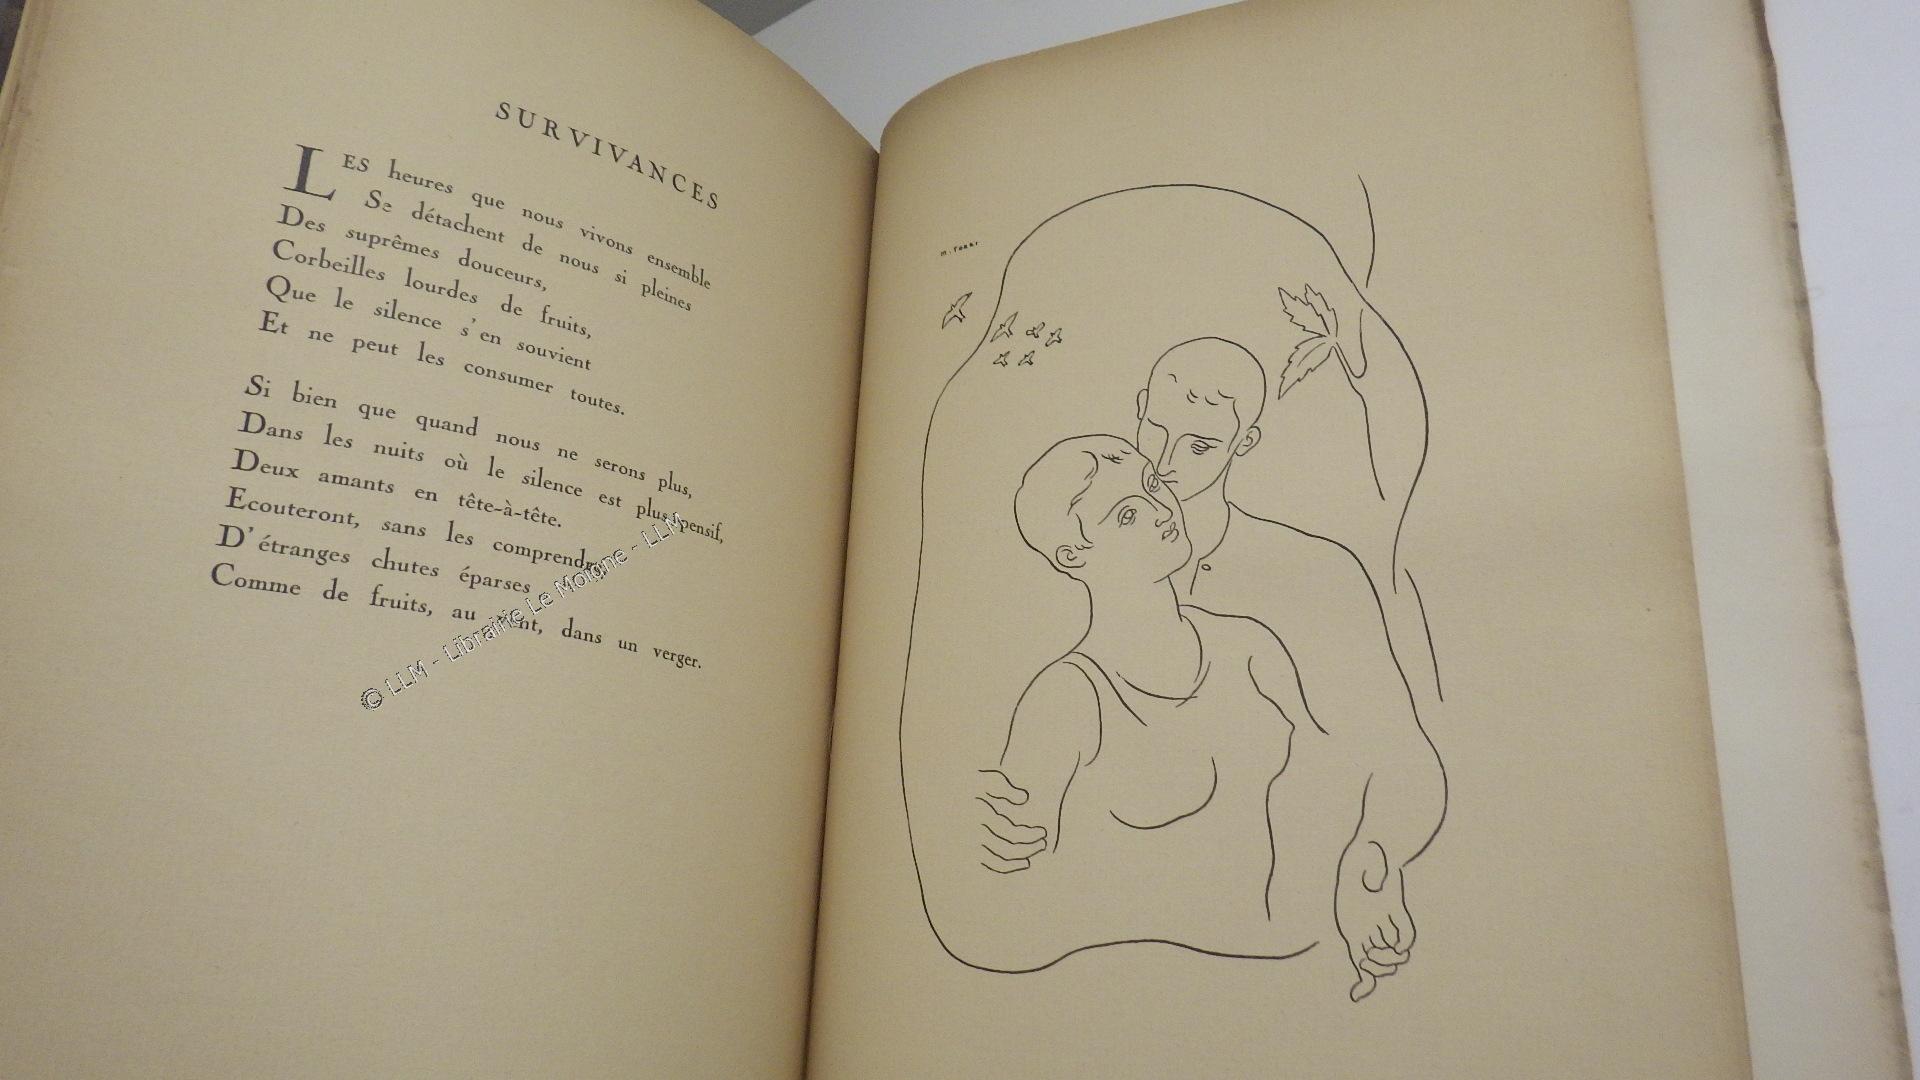 SURVIVANCES
LES heures que nous vivons ensemble
Se détachent de nous si pleines
Des suprêmes douceurs,
Corbeilles lourdes de fruits,
Que le silence s'en souvient
Et ne peut les consumer toutes.
Si bien que quand nous ne serons plus,
Dans les nuits où le silence est plus pensif,
Deux amants en tête-à-tête.
Ecouteront, sans les comprendre
D'étranges chutes éparses
Comme de fruits, au vent, dans un verger.
© LLM - Librairie Le Moigne - LLM